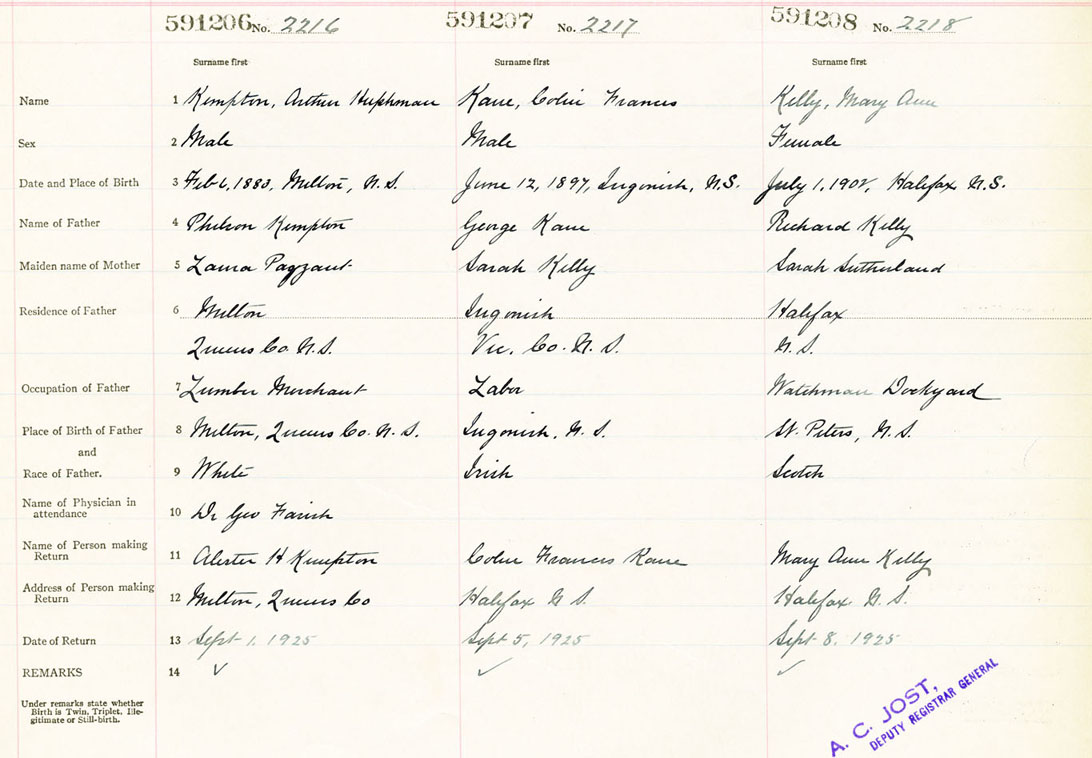 591206 No. 2216 591207 No. 2217 591208 No. 2218
Surname first Surname first Surname first
Name 1 Kempton, Arthur Kane, Colin Francis Kelly, Mary Ann
Sex 2 Male Male Female
Date and Place of Birth 3 Feb 6, 1883, Milton, N.S. June 12, 1897, Ingonish, N.S. July 1, 1902, Halifax N.S.
Name of Father 4 Kempton George Kane Richard Kelly
Maiden name of Mother 5 Laura Sarah Kelly Sarah Sutherland
Residence of Father 6 Milton Ingonish Halifax
Queens Co. N.S. Vic. Co. N.S. N.S.
Occupation of Father 7 Lumber Merchant Labor Watchman Dockyard
Place of Birth of Father 8 Milton, Queens Co. N.S. Ingonish, N.S. St. Peters, N.S.
and
Race of Father. 9 White Irish Scotch
Name of Physician in
attendance 10 Dr Geo Farish
Name of Person making
Return 11 H Kempton Colin Francis Kane Mary Ann Kelly
Address of Person making
Return 12 Milton, Queens Co Halifax N S. Halifax N.S.
Date of Return 13 Sept 1, 1925 Sept 5, 1925 Sept 8, 1925
REMARKS 14 ✓ ✓ ✓
Under remarks state whether
Birth is Twin, Triplet, Ille-
gitimate or Still-birth.
A. C. JOST,
DEPUTY REGISTRAR GENERAL